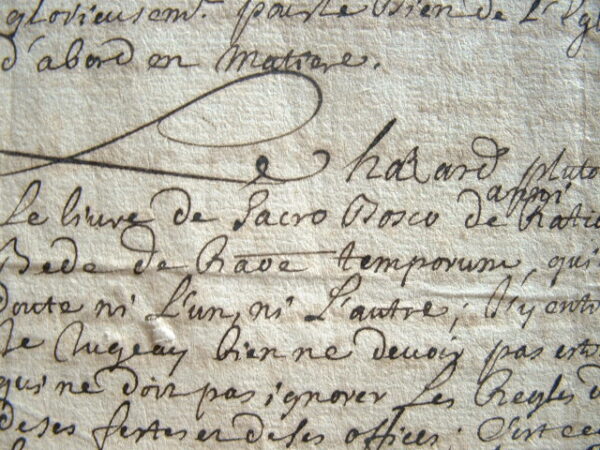 glorieusemt. pour le Bien de L'Egl
d'abord en matiere.
Le hazard pluto
Le livre de Sacro Bosco de anni Ratio
Bede de Rāōē temporum, qui
doute ni L'un, ni L'autre; J'y entr
Je Jugeay bien ne devoir pas estr
qui ne doit pas ignorer Les Regles d
de ses festes et de ses offices. C'est ce